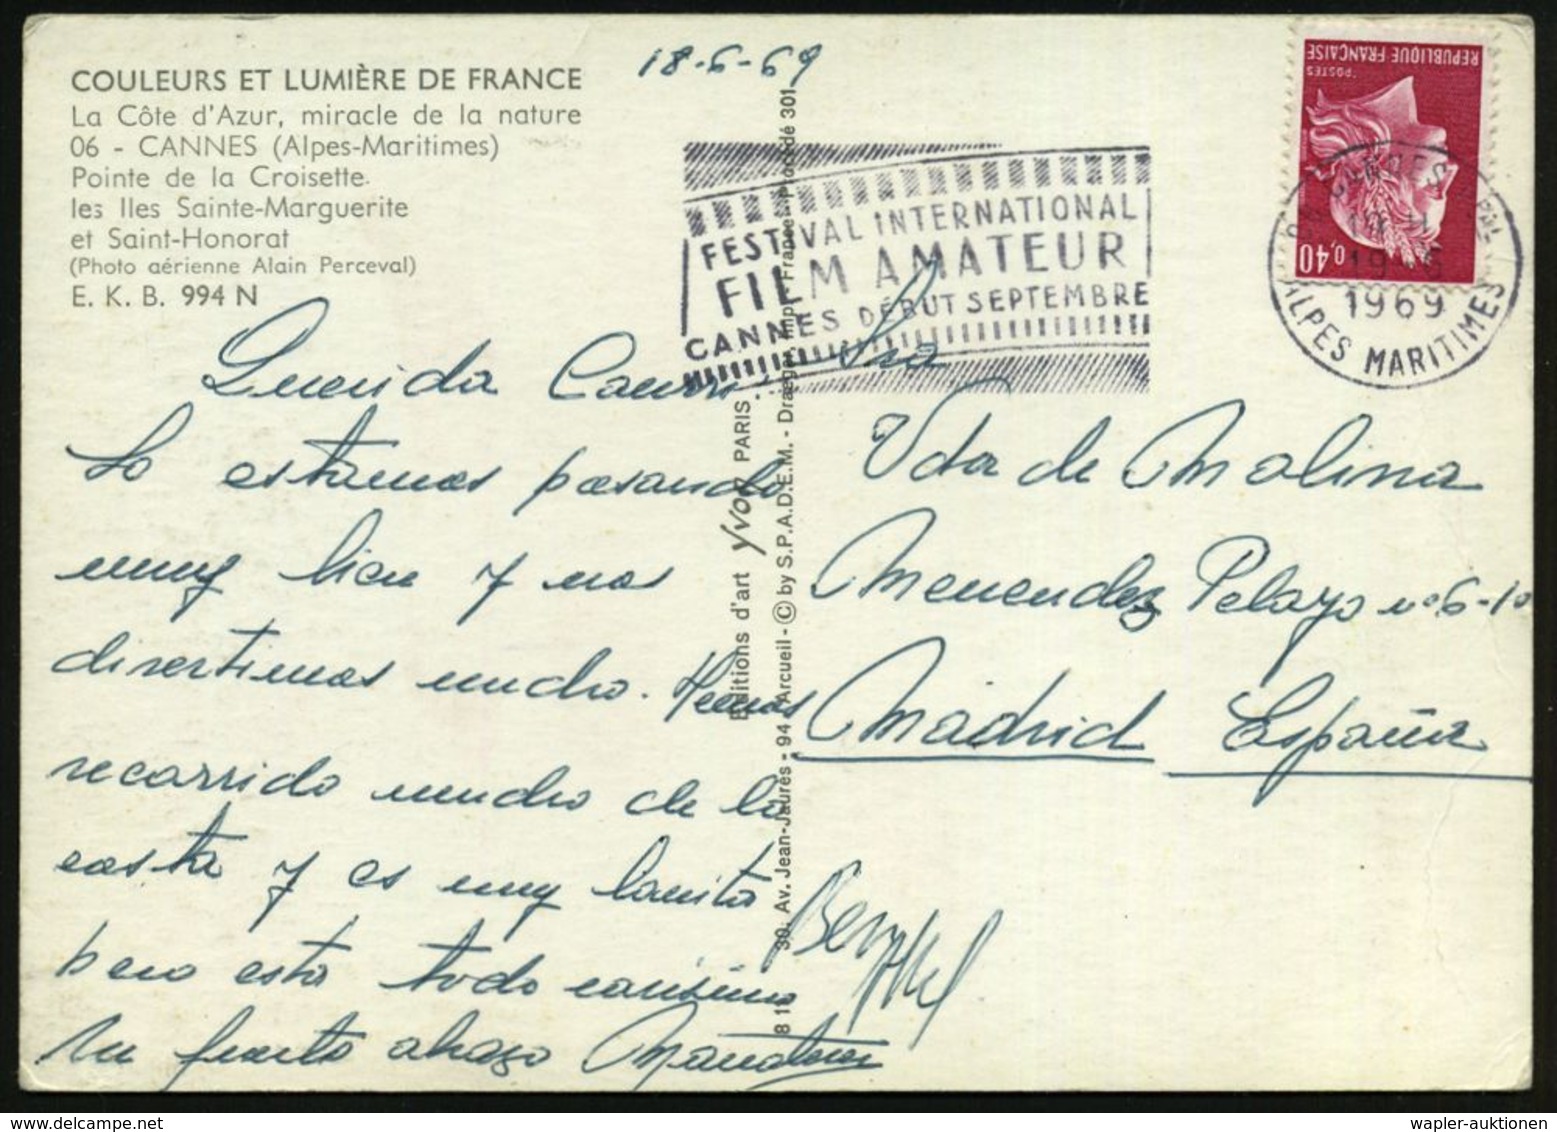 COULEURS ET LUMIÈRE DE FRANCE
La Côte d'Azur, miracle de la nature
06 - CANNES (Alpes-Maritimes)
Pointe de la Croisette
les Iles Sainte-Marguerite
et Saint-Honorat
(Photo aérienne Alain Perceval)
E. K. B. 994 N
18-6-69
FESTIVAL INTERNATIONAL
FILM AMATEUR
CANNES DÉBUT SEPTEMBRE
REPUBLIQUE FRANÇAISE
POSTES
0,40
1969
ALPES MARITIMES
Querida
Lo estamos pasando
muy bien y nos
divertimos mucho. Hemos
recorrido mucho de la
costa y es muy bonita
pero esta todo carisimo
Un fuerte abrazo
Sra
Vda de Molina
Menendez Pelayo nº 6-1º
Madrid España
Editions d'art Yvon PARIS
30, Av. Jean-Jaurès - 94 - Arcueil - © by S.P.A.D.E.M. - Draeger, Imp. France - Procédé 301
wapler-auktionen